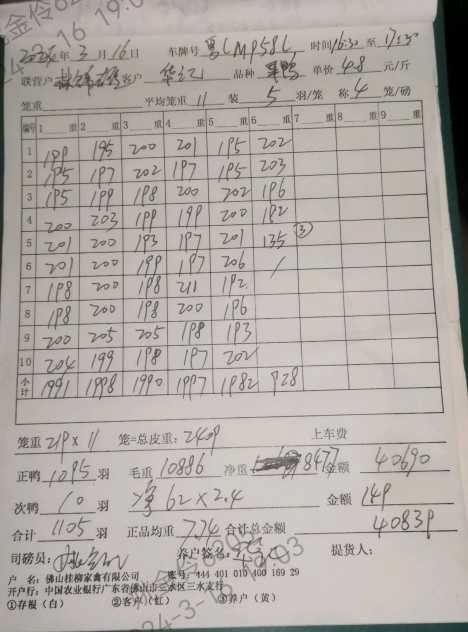 2024年3月16日 车牌号 粤LMP58L 时间16:30 至
联营户 客户 华记 品种 单价4.8 元/斤
笼重 平均笼重 11 装 5 羽/笼 称 4 笼/磅
编号 1 重 2 重 3 重 4 重 5 重 6 重 7 重 8 重 9 重
1 199 195 200 201 195 202
2 195 197 202 197 195 203
3 195 199 198 200 202 196
4 200 203 199 199 200 192
5 201 200 193 197 201 135 ③
6 201 200 199 197 206 /
7 198 200 198 211 192
8 198 200 198 200 196
9 200 205 205 198 193
10 204 199 198 197 202
小计 1991 1998 1990 1997 1982 928
笼重 219 x 11 笼=总皮重: 2409 上车费
正鸭 1095 羽 毛重 10886 净重 8477 金额 40690
次鸭 10 羽 净 62 x 2.4 金额 149
合计 1105 羽 正品均重 7.74 合计总金额 40839
司磅员: 养户签名: 提货人:
户 名: 佛山桂柳家禽有限公司 账号 444 401 010 400 169 29
开户行: 中国农业银行广东省佛山市三水区三水支行
①存根(白) ②客户(红) ③养户(黄)